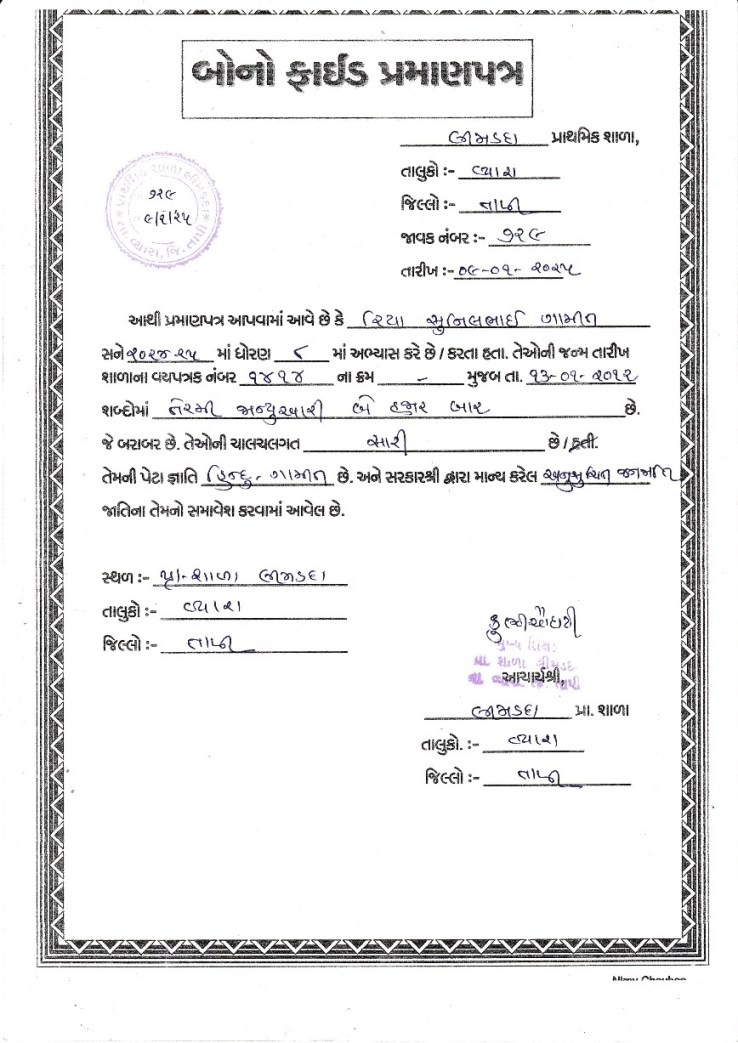 બોનો ફાઈડ પ્રમાણપત્ર
લીમડદા પ્રાથમિક શાળા,
તાલુકો :- વ્યારા
જિલ્લો :- તાપી
જાવક નંબર :- ૧૨૯
તારીખ :- ૦૯-૦૧-૨૦૨૫
પ્રાથમિક શાળા લીમડદા
૧૨૯
તા. વ્યારા, જિ. તાપી
આથી પ્રમાણપત્ર આપવામાં આવે છે કે રિયા સુનિલભાઈ ગામીત
સને ૨૦૨૪-૨૫ માં ધોરણ ૮ માં અભ્યાસ કરે છે / કરતા હતા. તેઓની જન્મ તારીખ
શાળાના વયપત્રક નંબર ૧૪૧૪ ના ક્રમ - મુજબ તા. ૧૩-૦૧-૨૦૧૨
શબ્દોમાં તેરમી જાન્યુઆરી બે હજાર બાર છે.
જે બરાબર છે. તેઓની ચાલચલગત સારી છે / હતી.
તેમની પેટા જ્ઞાતિ હિન્દુ-ગામીત છે. અને સરકારશ્રી દ્વારા માન્ય કરેલ અનુસુચિત જનજાતિ
જાતિના તેમનો સમાવેશ કરવામાં આવેલ છે.
સ્થળ :- પ્રા-શાળા લીમડદા
તાલુકો :- વ્યારા
જિલ્લો :- તાપી
આચાર્યશ્રી,
લીમડદા પ્રા. શાળા
તાલુકો. :- વ્યારા
જિલ્લો :- તાપી